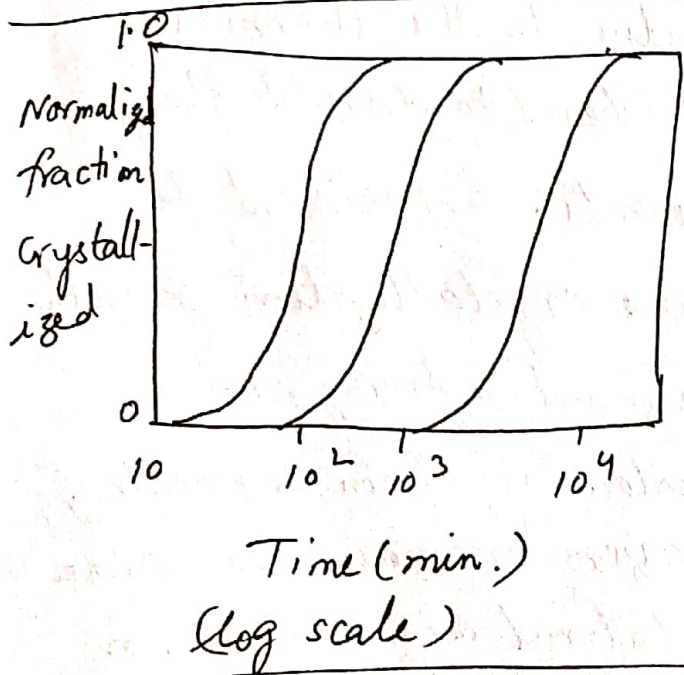 1.0
Normalized
fraction
Crystall-
ized
0
10 10² 10³ 10⁴
Time (min.)
(log scale)